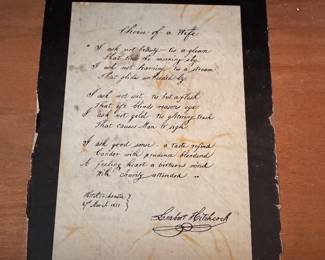 Choice of a Wife
" I ask not beauty – tis a gleam
That tints the morning sky
I ask not learning – tis a stream
That glides unheeded by
I ask not wit – tis but a flash
That oft blinds reasons eye
I ask not gold – tis glittering trash
That causes Man to sigh
I ask good sense – a taste refin'd
Candor with prudence blended
A feeling heart a virtuous mind
With charity attended "
March 1831
Lambert Hitchcock